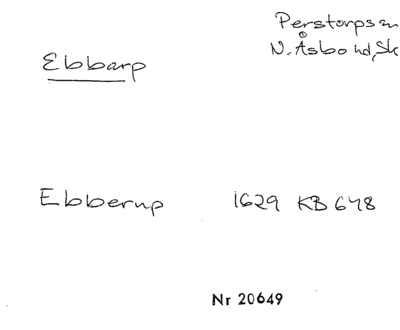 Perstorps sn
Ebbarp N. Åsbo hd, Sk
Ebberup 1629 KB 648
Nr 20649